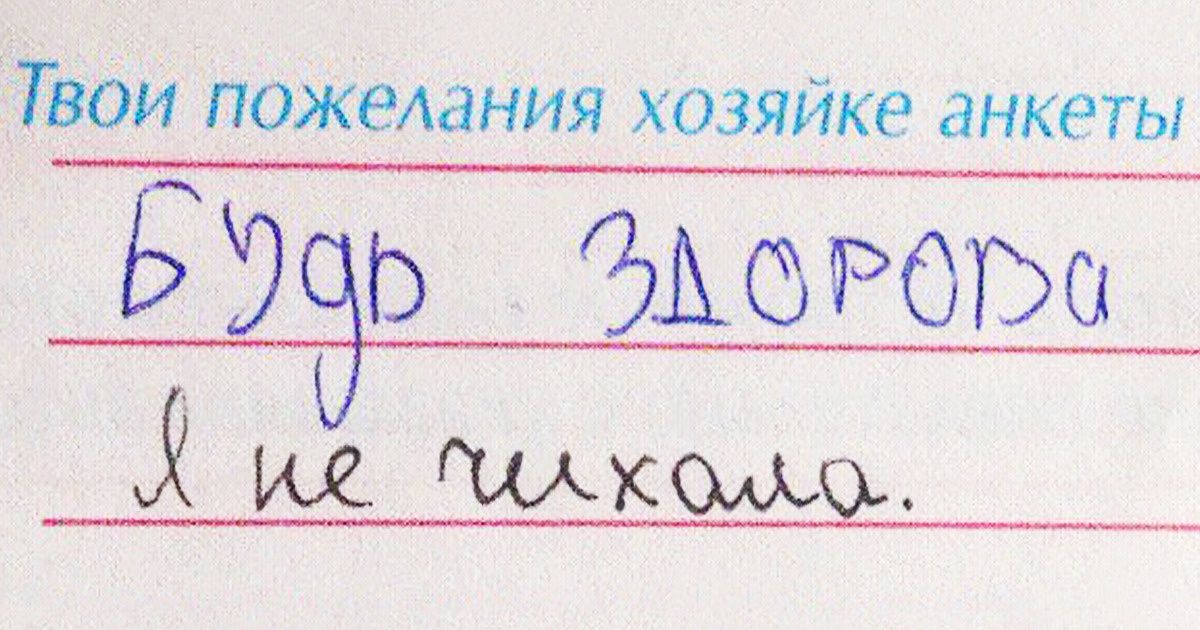 Твои пожелания хозяйке анкеты
Будь здорова
Я не чихала.